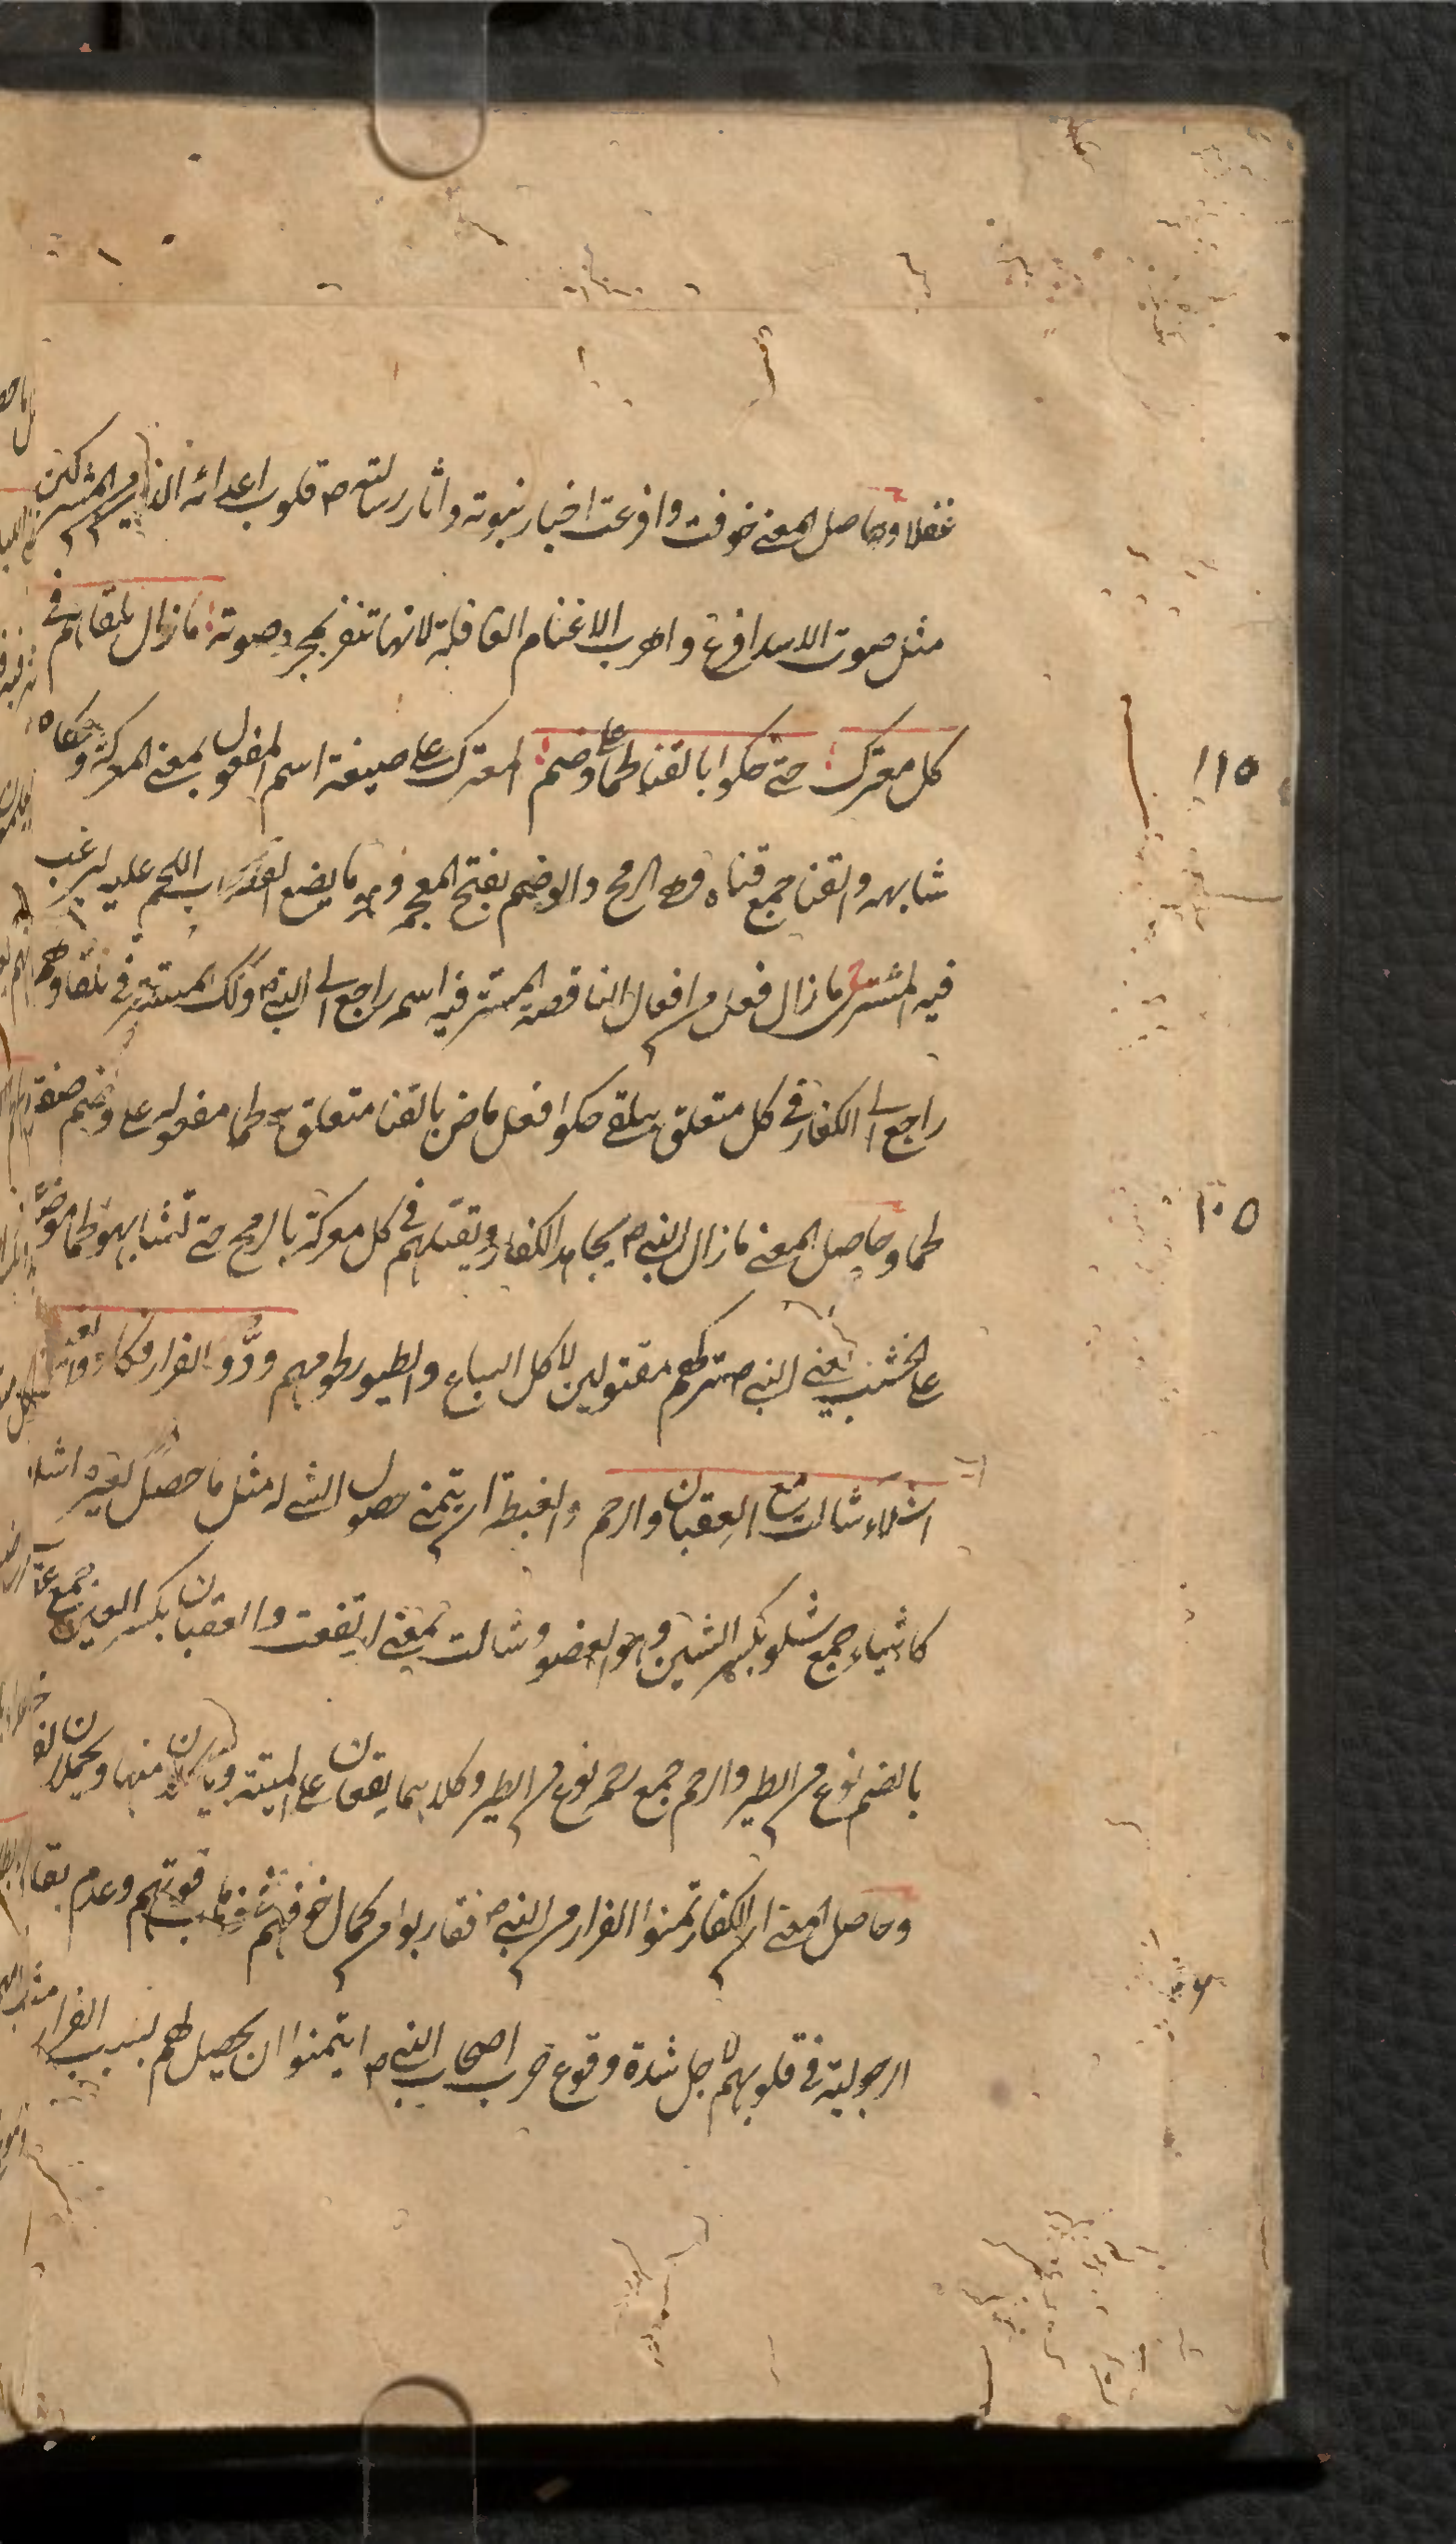 غفلا وحاصل المعنى خوفت وافزعت اخبار نبوته واثار رسالته ص قلوب اعدائه الذين من المشركين
مثل صوت الاسد افزع واهرب الاغنام الغافلة لانها تنفر بمجرد صوته ما زال يلقاهم في
كل معترك حتى حكوا بالقنا لحما على وضم المعترك على صيغة اسم المفعول بمعنى المعركة وحكاه
شابهه والقنا جمع قناه وهو الرمح والوضم بفتح المعجمة وهو ما يضع القصاب اللحم عليه ليرغب
فيه المشترى ما زال فعل من افعال الناقصة المستتر فيه اسمه راجع الى النبي ص وذلك المستتر في يلقا وهم
راجع الى الكفار في كل متعلق بيلقى حكوا فعل ماض بالقنا متعلق به لحما مفعوله على وضم صفة
لحما وحاصل المعنى ما زال النبي ص يجاهد الكفار ويقتلهم في كل معركة بالرمح حتى تشابهوا لحما موضوعا
على الخشب يعنى النبي ص تركهم مقتولين لاكل السباع والطيور لحومهم ودّوا الفرار فكادوا يغبطون به
اشلاء شالت مع العقبان والرحم والغبطة ان يتمنى حصول الشئ له مثل ما حصل لغيره اشلاء
كاشياء جمع شلو بكسر الشين وهو العضو وشالت بمعنى ارتفعت والعقبان بكسر العين جمع عقاب
بالضم نوع من الطير والرحم جمع رحمة نوع من الطير وكلاهما يقعان على الميتة وياكلان منها ويحملان
وحاصل المعنى ان الكفار تمنوا الفرار من النبي ص فقاربوا من كمال خوفهم قوتهم وعدم بقاء
الرجولية في قلوبهم لاجل شدة وقوع حرب اصحاب النبي ص ان يتمنوا ان يحصل لهم بسبب الفرار
١١٥
١٠٥